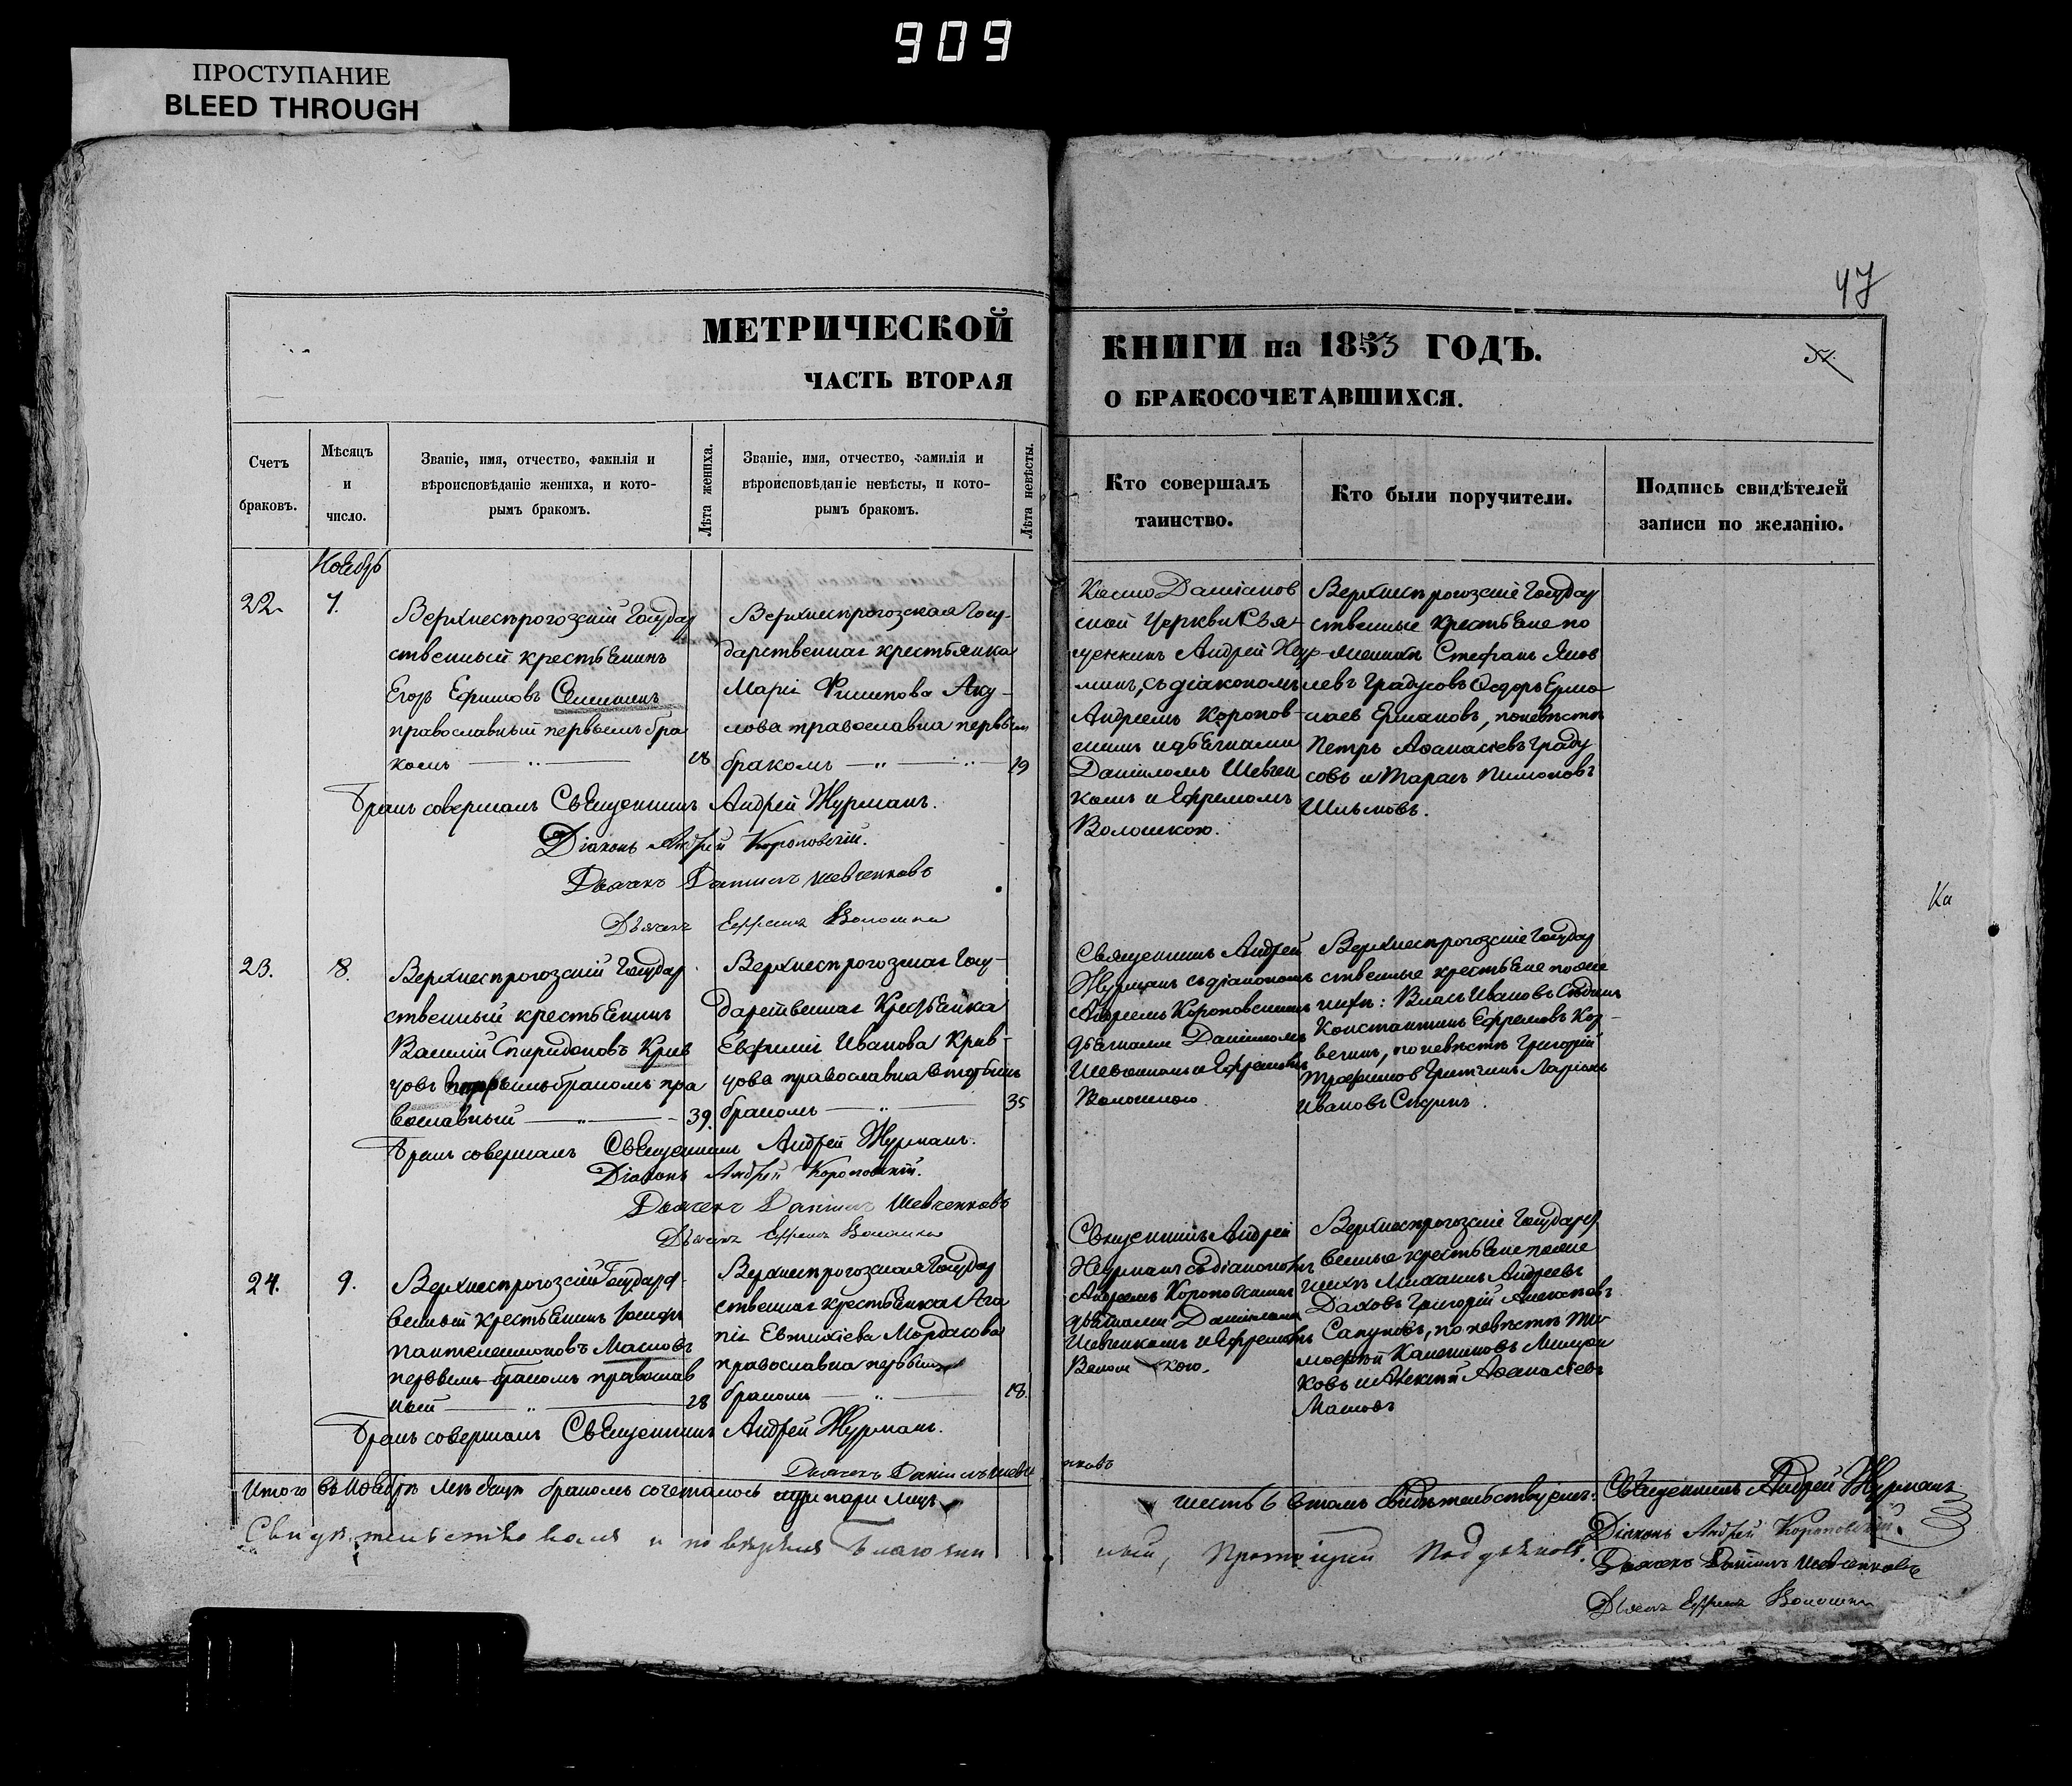 909
ПРОСТУПАНИЕ
BLEED THROUGH
47
МЕТРИЧЕСКОЙ
КНИГИ на 1853 ГОДЪ.
ЧАСТЬ ВТОРАЯ
О БРАКОСОЧЕТАВШИХСЯ.
Счетъ браковъ.
Мѣсяцъ и число.
Званіе, имя, отчество, фамилія и
вѣроисповѣданіе жениха, и кото-
рымъ бракомъ.
Лѣта жениха.
Званіе, имя, отчество, фамилія и
вѣроисповѣданіе невѣсты, и кото-
рымъ бракомъ.
Лѣта невѣсты.
Кто совершалъ
таинство.
Кто были поручители.
Подпись свидѣтелей
записи по желанію.
Ноябрь
22.
7.
Верхнерогозскій Государ
ственный крестьянинъ
Егоръ Ефимовъ
православный первымъ бра
комъ
18
Верхнерогозская Госу-
дарственная крестьянка
Маріа Филипова Аку-
лова православна первымъ
бракомъ
19
Космо Даміанов
ской Церкви Свя-
щенникъ Андрей Жур-
манъ, съ діакономъ
Андреемъ Коропов-
скимъ и дьячками
Даніиломъ Шевчен
комъ и Ефремомъ
Волошкою.
Верхнерогозскіе Государ
ственные крестьяне по
женихѣ Стефанъ Яков
левъ Градусовъ Ѳедоръ Ермо-
лаев Ермаковъ, по невѣстѣ
Петръ Аѳанасіевъ Граду
совъ и Тарасъ Пимоновъ
Бракъ совершалъ Священникъ Андрей Журманъ.
Діаконъ Андрей Короповскій.
Дьячекъ Даниилъ Шевченковъ
Дьячекъ Ефремъ Волошка
23.
8.
Верхнерогозскій Государ
ственный крестьянинъ
Василій Спиридоновъ Крив
цовъ бракомъ пра
вославный
39.
Верхнерогозская Госу-
дарственная Крестьянка
Евфиміа Иванова Крив-
цова православна вторымъ
бракомъ
35
Священникъ Андрей
Журманъ съ діакономъ
Андреемъ Короповскимъ
дьячками Даніиломъ
Шевченкомъ и Ефремомъ
Волошкою
Верхнерогозскіе Государ
ственные крестьяне по же
нихѣ: Власъ Ивановъ
Константинъ Ефремовъ Кор-
, по невѣстѣ Григорій
Трофимов Ларіонъ
Ивановъ
Бракъ совершалъ Священникъ Андрей Журманъ.
Діаконъ Андрей Короповскій.
Дьячекъ Даниилъ Шевченковъ
Дьячекъ Ефремъ Волошка
24.
9.
Верхнерогозскій Государст-
венный крестьянинъ Іосифъ
Пантелеимоновъ Масловъ
первымъ бракомъ православ
ный
28
Верхнерогозская Государ
ственная крестьянка Ага
піа Евтихіева Мордасова
православна первымъ
бракомъ
18.
Священникъ Андрей
Журманъ съ діакономъ
Андреемъ Короповскимъ
дьячками Даніиломъ
Шевченкомъ и Ефремомъ
Волошкою.
Верхнерогозскіе Государст
венные крестьяне по же
нихѣ Михаилъ Андреевъ
Григорій
Сапуновъ, по невѣстѣ Ти-
моѳей
ковъ и Алексій Аѳанасіевъ
Масловъ
Бракъ совершалъ Священникъ Андрей Журманъ.
Дьячекъ Даніилъ Шевченковъ
Итого въ Ноябрѣ мѣсяцѣ бракомъ сочеталось три пари лицъ
шесть 6 въ томъ свидѣтельствуемъ: Священникъ Андрей Журманъ
Діаконъ Андрей Короповскій.
Дьячекъ Даниилъ Шевченковъ
Дьячекъ Ефремъ Волошка
Свидѣтельствовалъ и повѣрялъ Благочин
ный, Протоіерей
Ка